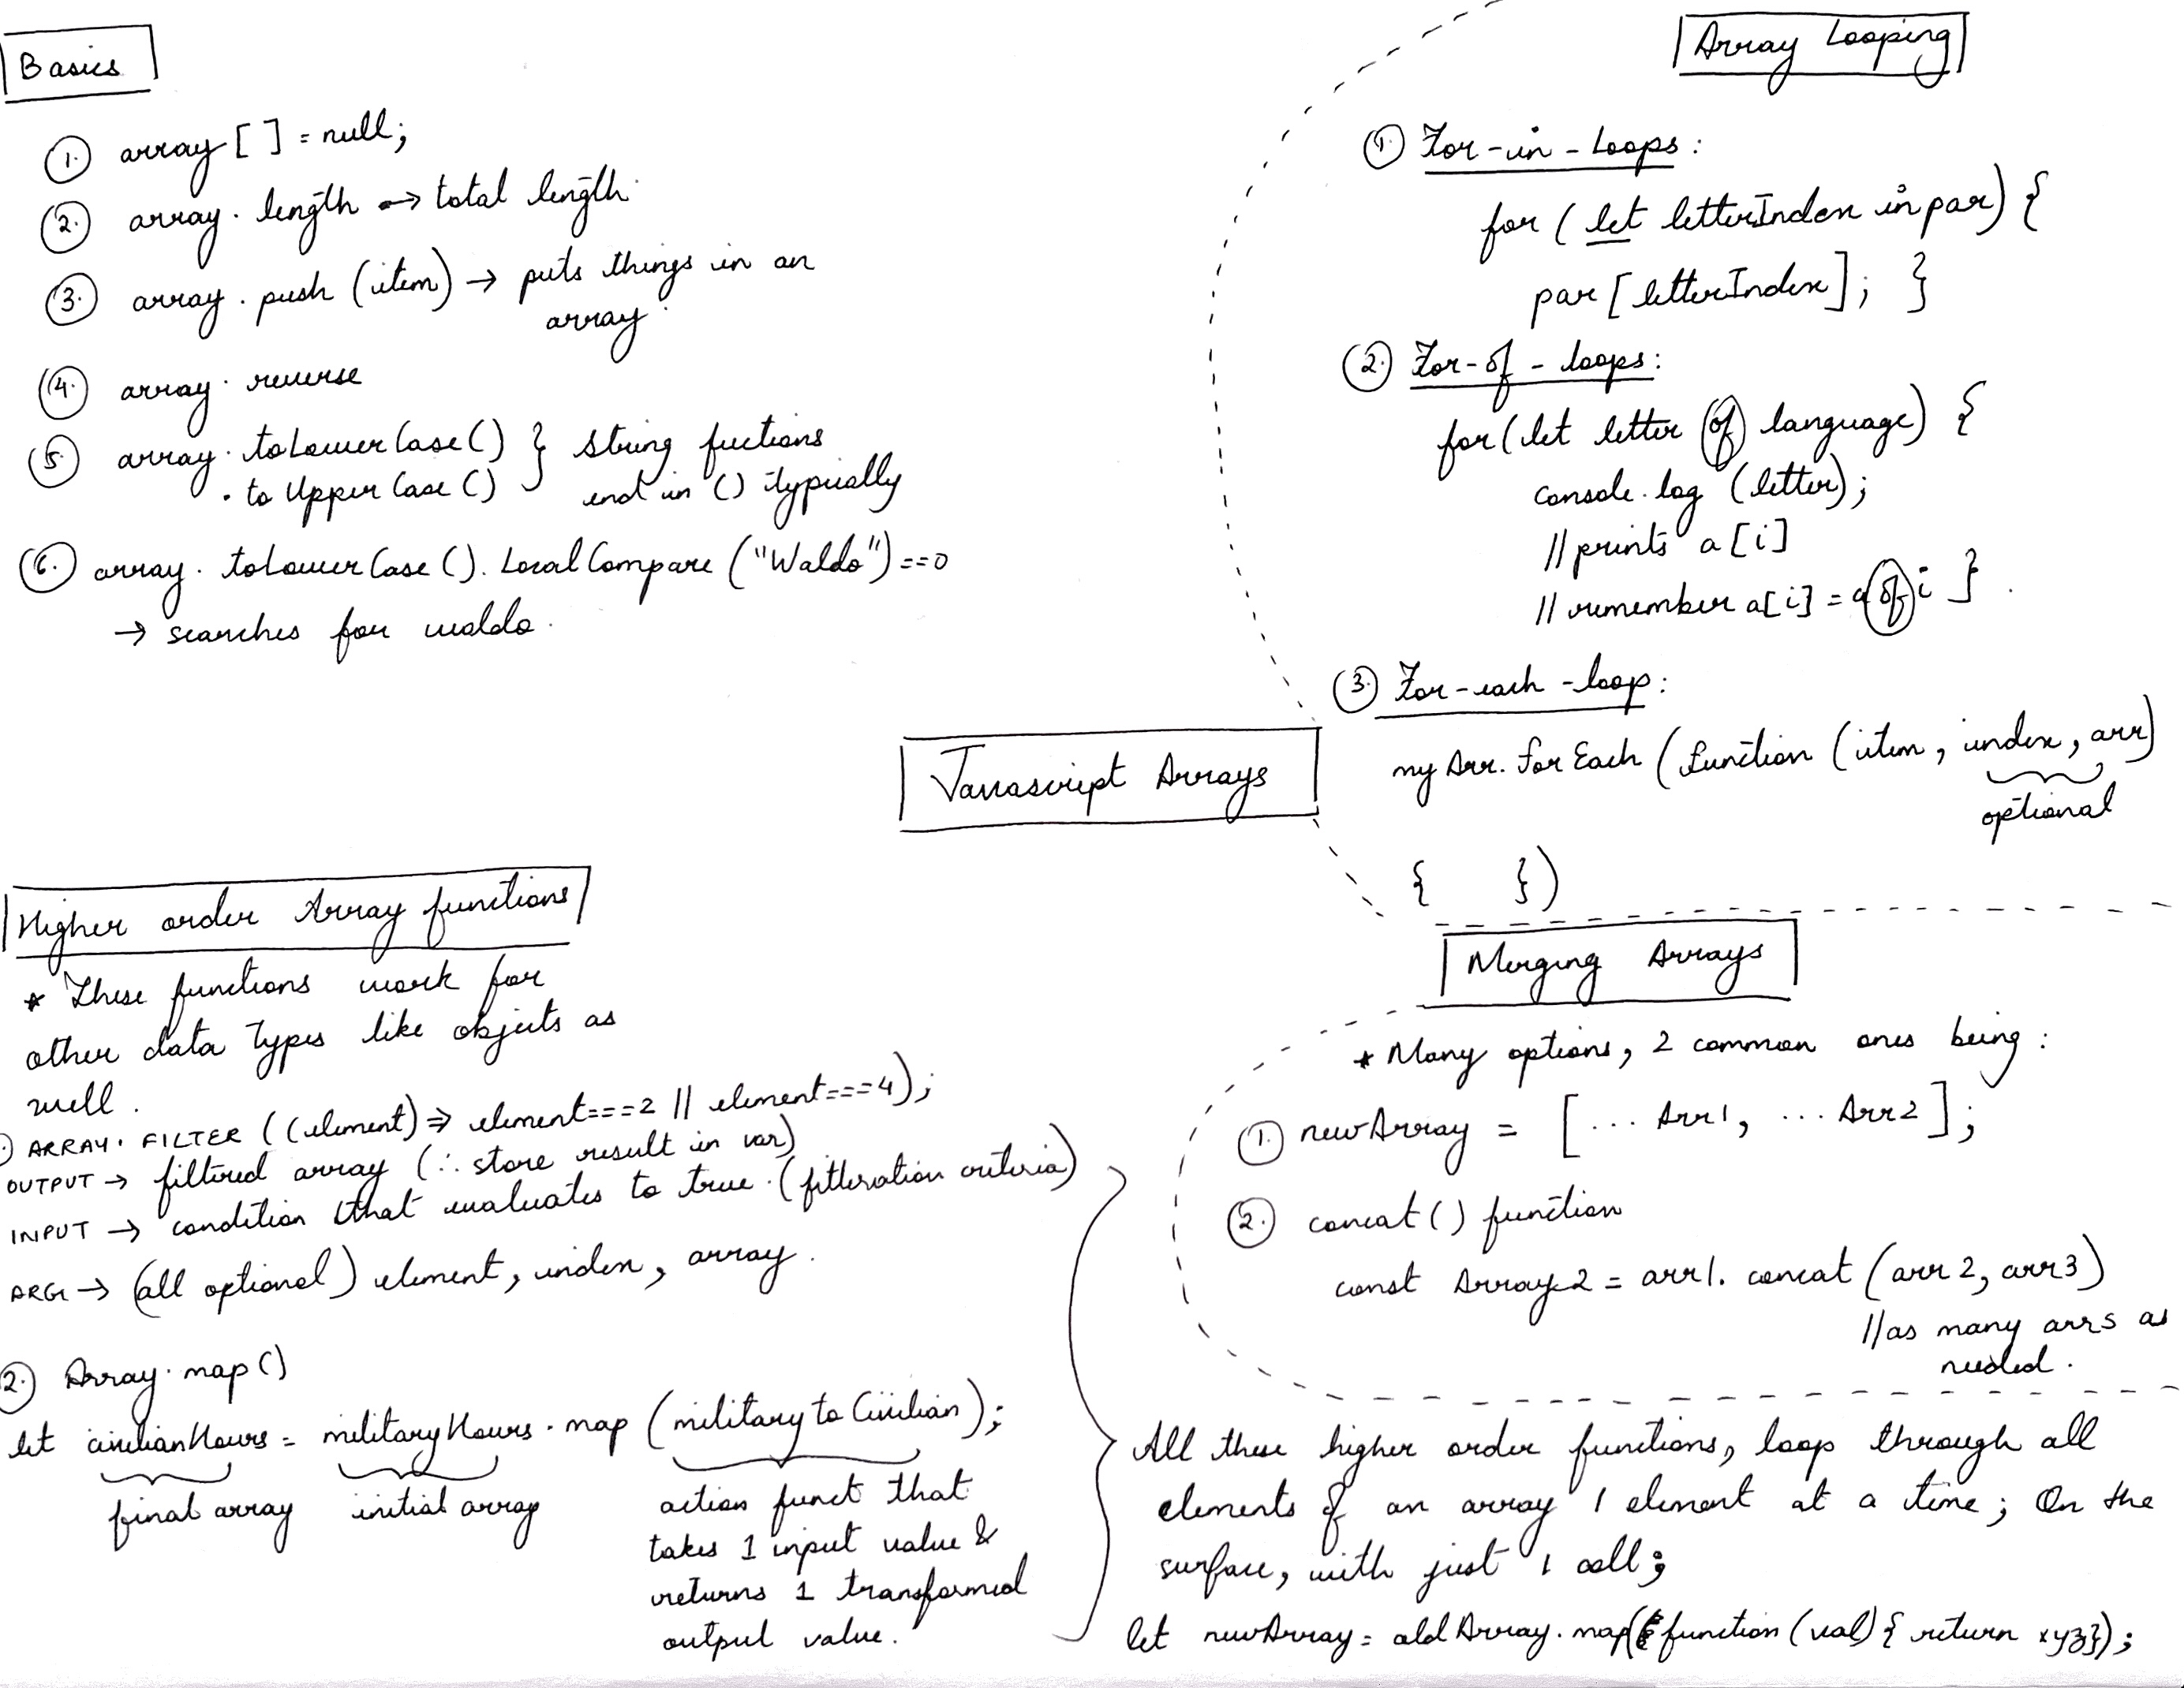 Basics
1. array [ ] = null;
2. array. length → total length.
3. array. push (item) → puts things in an
array.
4. array. reverse
5. array. toLowerCase() } string fuctions
. to UpperCase() end in () typically
6. array. toLowerCase(). LocalCompare ("Waldo") ==0
→ searches for waldo.
Array Looping
1. For-in-Loops:
for (let letterIndex in par) {
par [letterIndex]; }
2. For-of-loops:
for (let letter of language) {
console.log (letter);
// prints a[i]
// remember a[i] = a of i }
3. For-each-loop:
myArr. forEach (function (item, index, arr)
optional
{ })
Javascript Arrays
Higher order Array functions
* These functions work for
other data types like objects as
well.
ARRAY. FILTER ((element) ⇒ element===2 || element===4);
OUTPUT → filtered array (∴ store result in var)
INPUT → condition that evaluates to true. (filteration criteria)
ARG → (all optional) element, index, array.
2. Array.map()
let civilianHours = militaryHours.map (military to Civilian);
final array initial array action funct that
takes 1 input value &
returns 1 transformed
output value.
Merging Arrays
* Many options, 2 common ones being:
1. newArray = [... Arr1, ... Arr2];
2. concat() function
const Array2 = arr1. concat (arr2, arr3)
//as many arrs as
needed.
All these higher order functions, loop through all
elements of an array 1 element at a time; On the
surface, with just 1 call;
let newArray = oldArray.map(function (val) { return xyz});